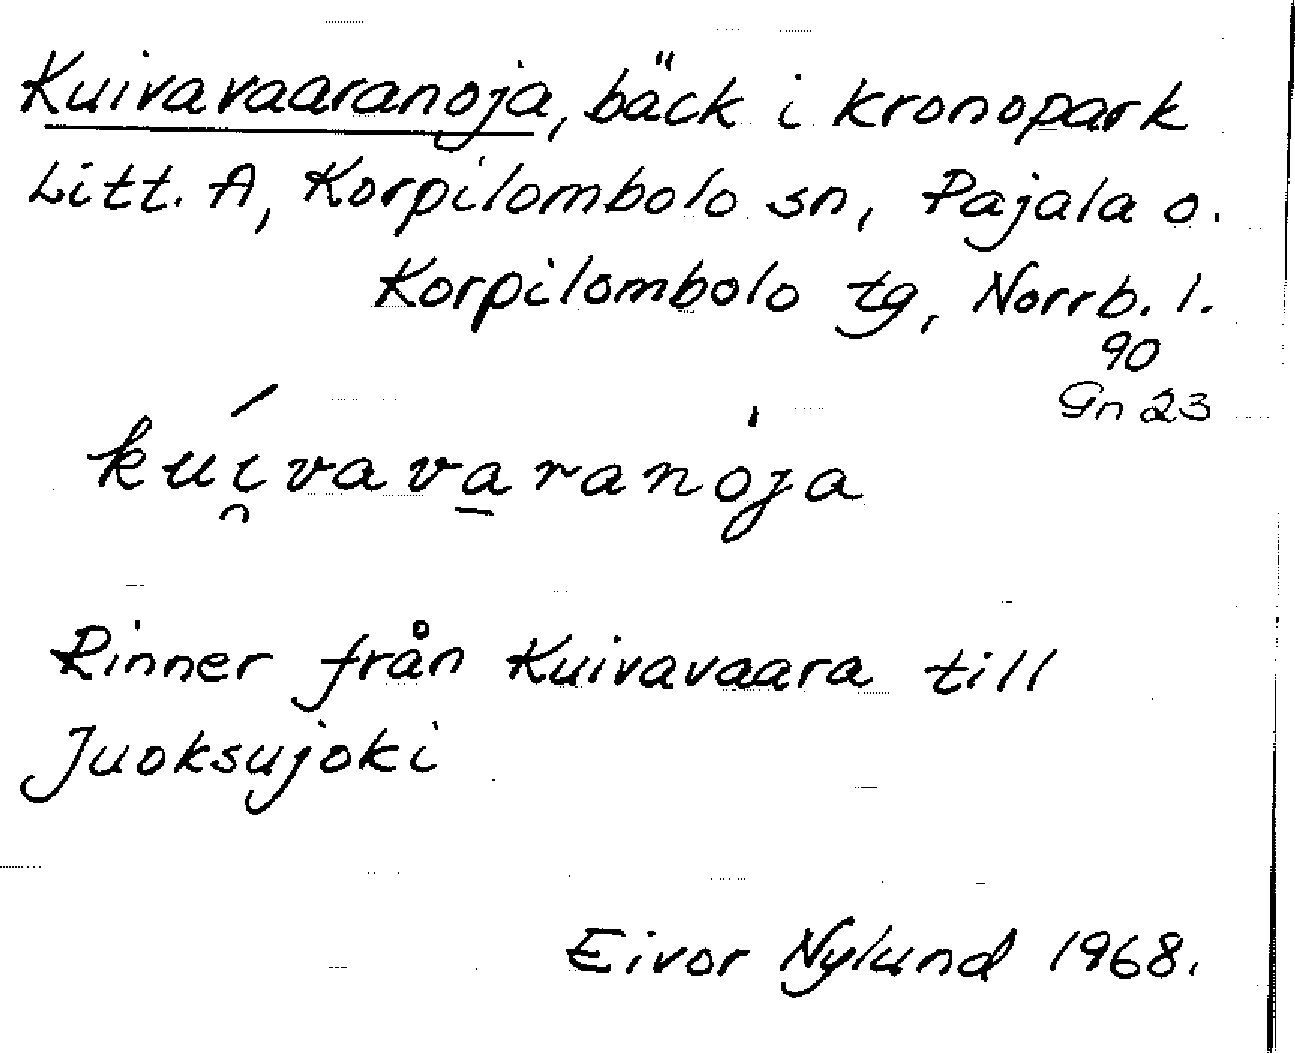 Kuivavaaranoja, bäck i kronopark
Litt. A, Korpilombolo sn, Pajala o.
Korpilombolo tg, Norrb. l.
90
Gn 23
kúi̯vava̱ranòja
Rinner från Kuivavaara till
Juoksujoki
Eivor Nylund 1968.